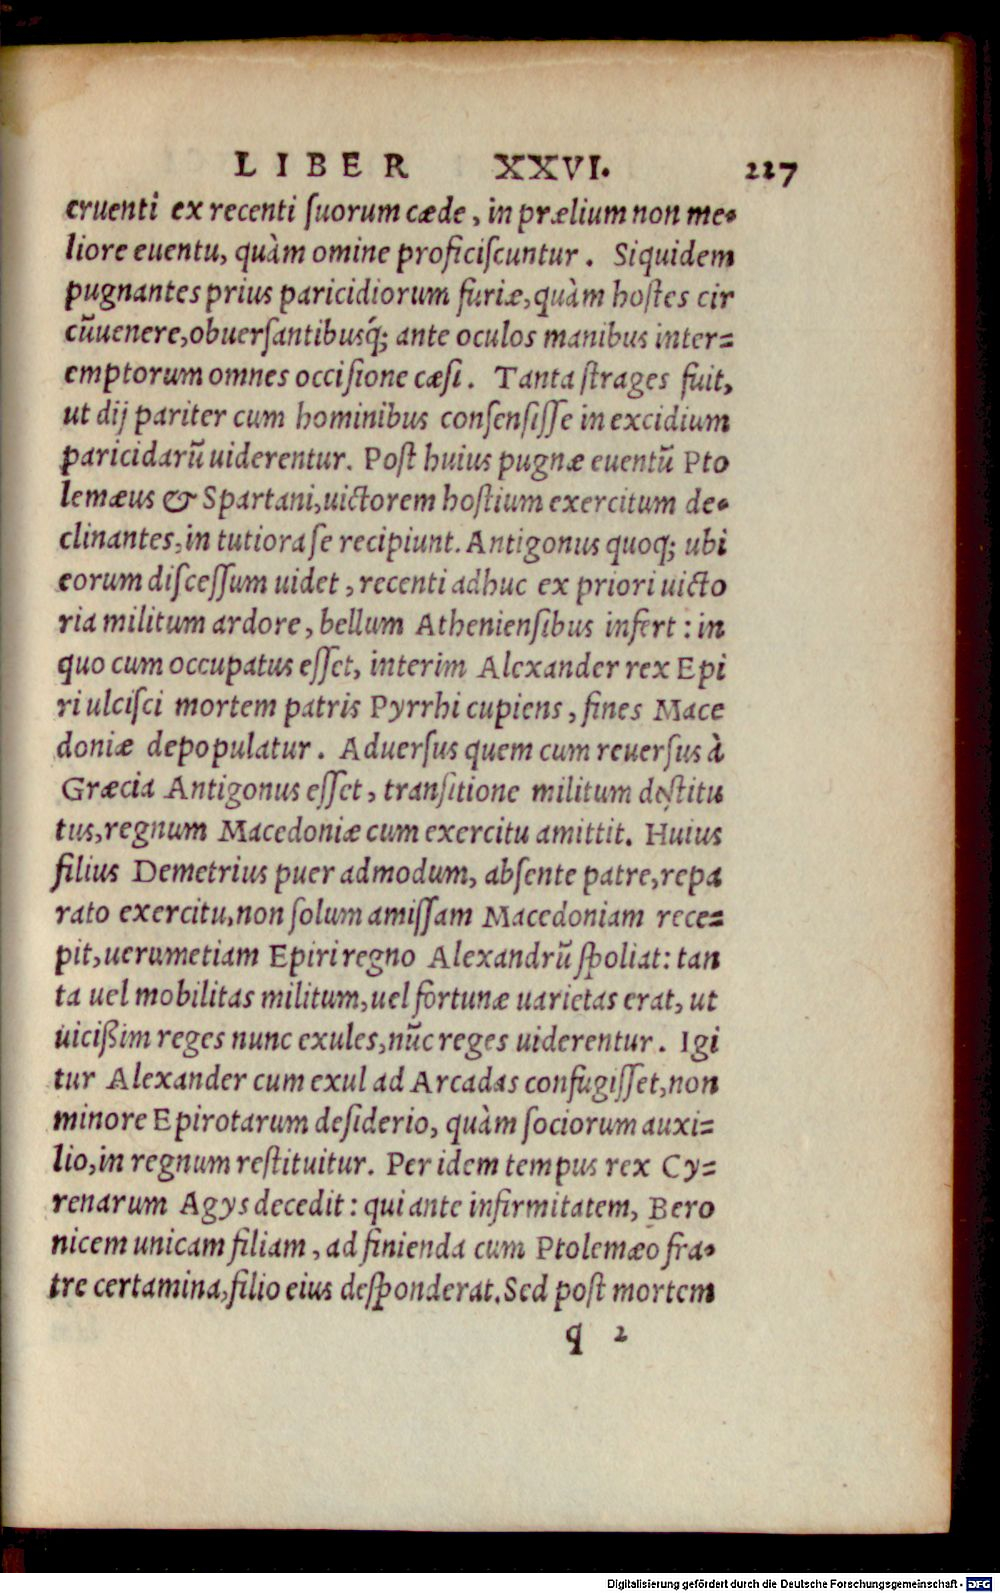 LIBER XXVI. 227
cruenti ex recenti ſuorum cæde, in prælium non me-
liore euentu, quàm omine proficiſcuntur. Siquidem
pugnantes prius paricidiorum furiæ, quàm hoſtes cir
cũuenere, obuerſantibusq́; ante oculos manibus inter-
emptorum omnes occiſione cæſi. Tanta ſtrages fuit,
ut dij pariter cum hominibus conſenſiſſe in excidium
paricidarũ uiderentur. Poſt huius pugnæ euentũ Pto
lemæus & Spartani, uictorem hoſtium exercitum de-
clinantes, in tutiora ſe recipiunt. Antigonus quoq; ubi
eorum diſceſſum uidet, recenti adhuc ex priori uicto
ria militum ardore, bellum Athenienſibus infert: in
quo cum occupatus eſſet, interim Alexander rex Epi
ri ulciſci mortem patris Pyrrhi cupiens, fines Mace
doniæ depopulatur. Aduerſus quem cum reuerſus à
Græcia Antigonus eſſet, tranſitione militum deſtitu
tus, regnum Macedoniæ cum exercitu amittit. Huius
filius Demetrius puer admodum, abſente patre, repa
rato exercitu, non ſolum amiſſam Macedoniam rece-
pit, uerumetiam Epiri regno Alexandrũ ſpoliat: tan
ta uel mobilitas militum, uel fortunæ uarietas erat, ut
uicißim reges nunc exules, nũc reges uiderentur. Igi
tur Alexander cum exul ad Arcadas confugiſſet, non
minore Epirotarum deſiderio, quàm ſociorum auxi-
lio, in regnum reſtituitur. Per idem tempus rex Cy-
renarum Agys decedit: qui ante infirmitatem, Bero
nicem unicam filiam, ad finienda cum Ptolemæo fra-
tre certamina, filio eius deſponderat. Sed poſt mortem
q 2
Digitalisierung gefördert durch die Deutsche Forschungsgemeinschaft - DFG